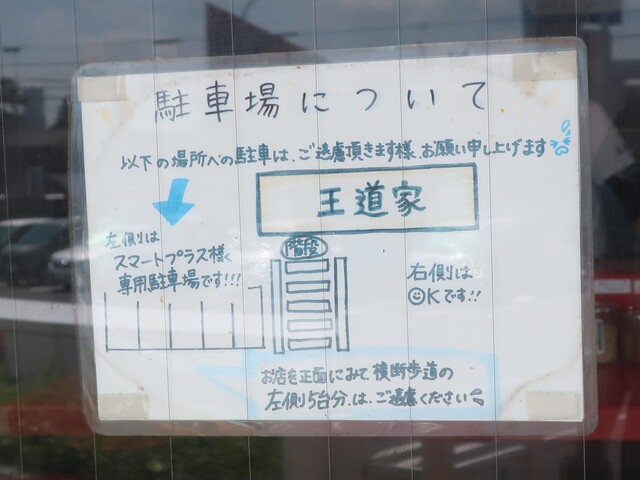 駐車場について
以下の場所への駐車は、ご遠慮頂きます様、お願い申し上げます
王道家
階段
左側は
スマートプラス様
専用駐車場です!!!
右側は
OKです!!
お店を正面にみて横断歩道の
左側5台分は、ご遠慮ください